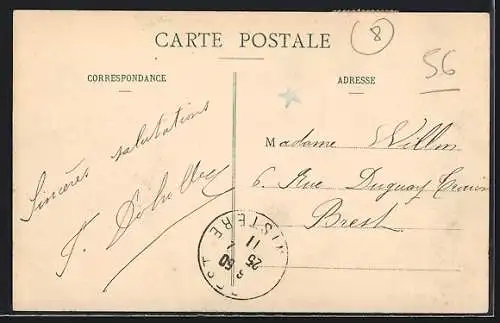 CARTE POSTALE
8
56
CORRESPONDANCE
ADRESSE
Sincères salutations
Madame Willm
6, Rue Duguay Trouin
Brest
FINISTERE
25
09